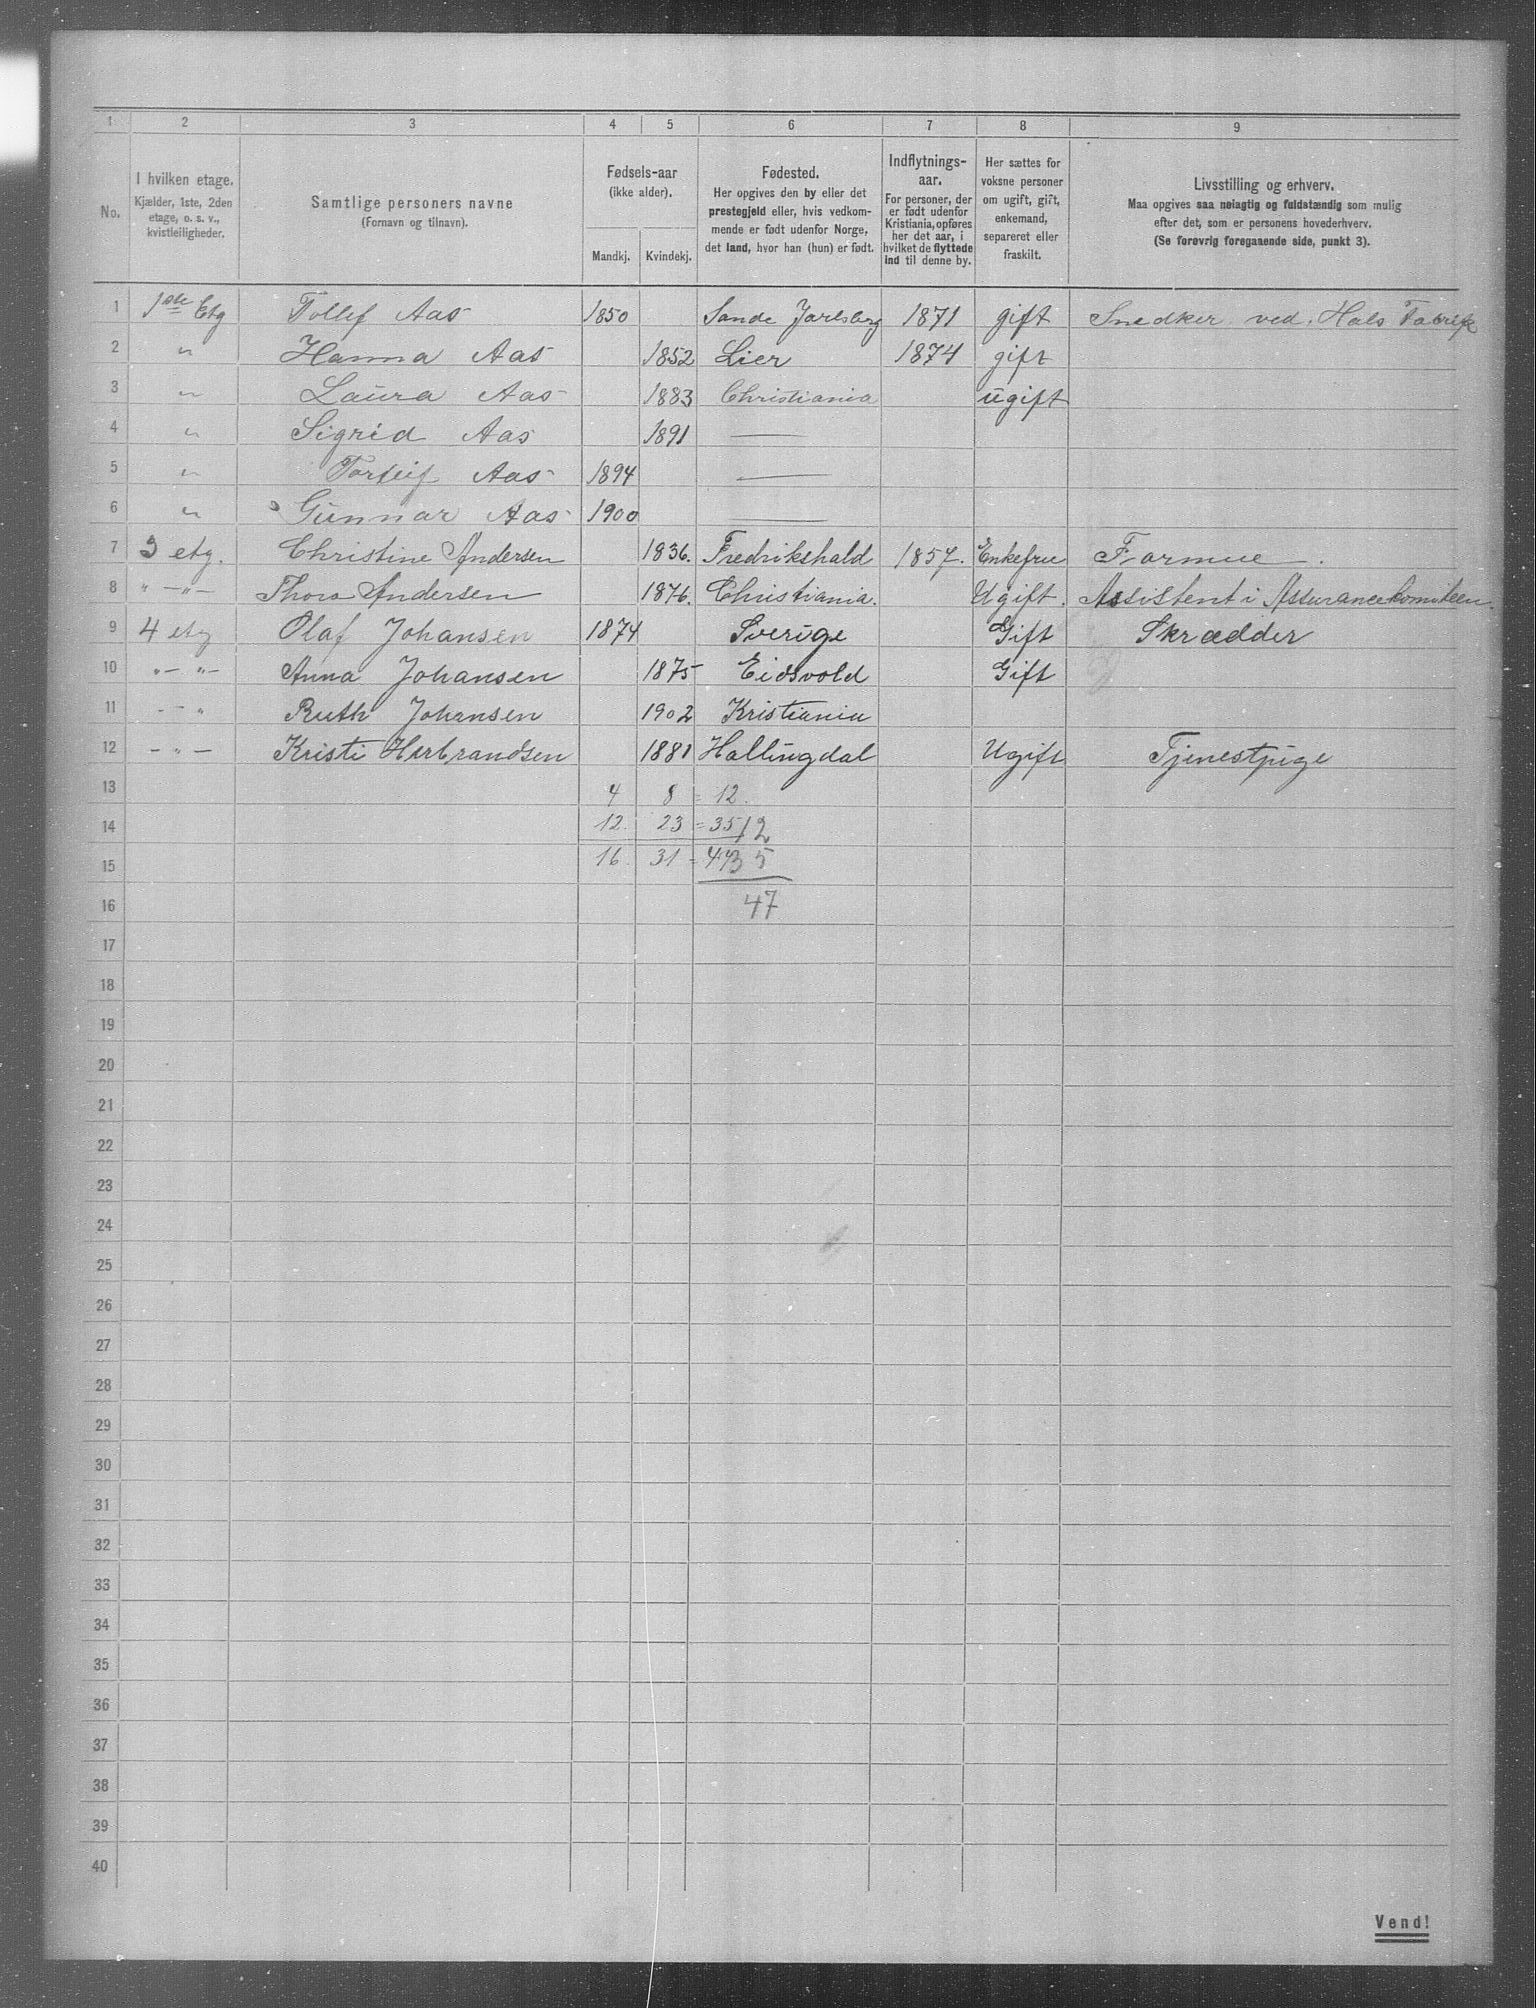 1 2 3 4 5 6 7 8 9
No.
I hvilken etage.
Kjælder, 1ste, 2den
etage, o. s. v.,
kvistleiligheder.
Samtlige personers navne
(Fornavn og tilnavn).
Fødsels-aar
(ikke alder).
Mandkj. Kvindekj.
Fødested.
Her opgives den by eller det
prestegjeld eller, hvis vedkom-
mende er født udenfor Norge,
det land, hvor han (hun) er født.
Indflytnings-
aar.
For personer, der
er født udenfor
Kristiania, opføres
her det aar, i
hvilket de flyttede
ind til denne by.
Her sættes for
voksne personer
om ugift, gift,
enkemand,
separeret eller
fraskilt.
Livsstilling og erhverv.
Maa opgives saa nøiagtig og fuldstændig som mulig
efter det, som er personens hovederhverv.
(Se forøvrig foregaaende side, punkt 3).
1 1ste Etg Tollef Aas 1850 Sande Jarlsberg 1871 gift Snedker ved Hals Fabrik
2 " Hanna Aas 1852 Lier 1874 gift
3 " Laura Aas 1883 Christiania ugift
4 " Sigrid Aas 1891 —
5 " Torleif Aas 1894 —
6 " Gunnar Aas 1900 —
7 3 etg. Christine Andersen 1836. Fredrikshald 1857. Enkefrue Formue.
8 " — " — Thora Andersen 1876. Christiania. Ugift. Assistent i Assurancekomiteen.
9 4 etg Olaf Johansen 1874 Sverige Gift Skrædder
10 " — " — Anna Johansen 1875 Eidsvold Gift
11 — — " Ruth Johansen 1902 Kristiania
12 — " — Kristi Herbrandsen 1881 Hallingdal Ugift Tjenestpige
13 4 8 = 12.
14 12. 23 = 35 12
15 16. 31 = 47 35
16 47
17
18
19
20
21
22
23
24
25
26
27
28
29
30
31
32
33
34
35
36
37
38
39
40
Vend!